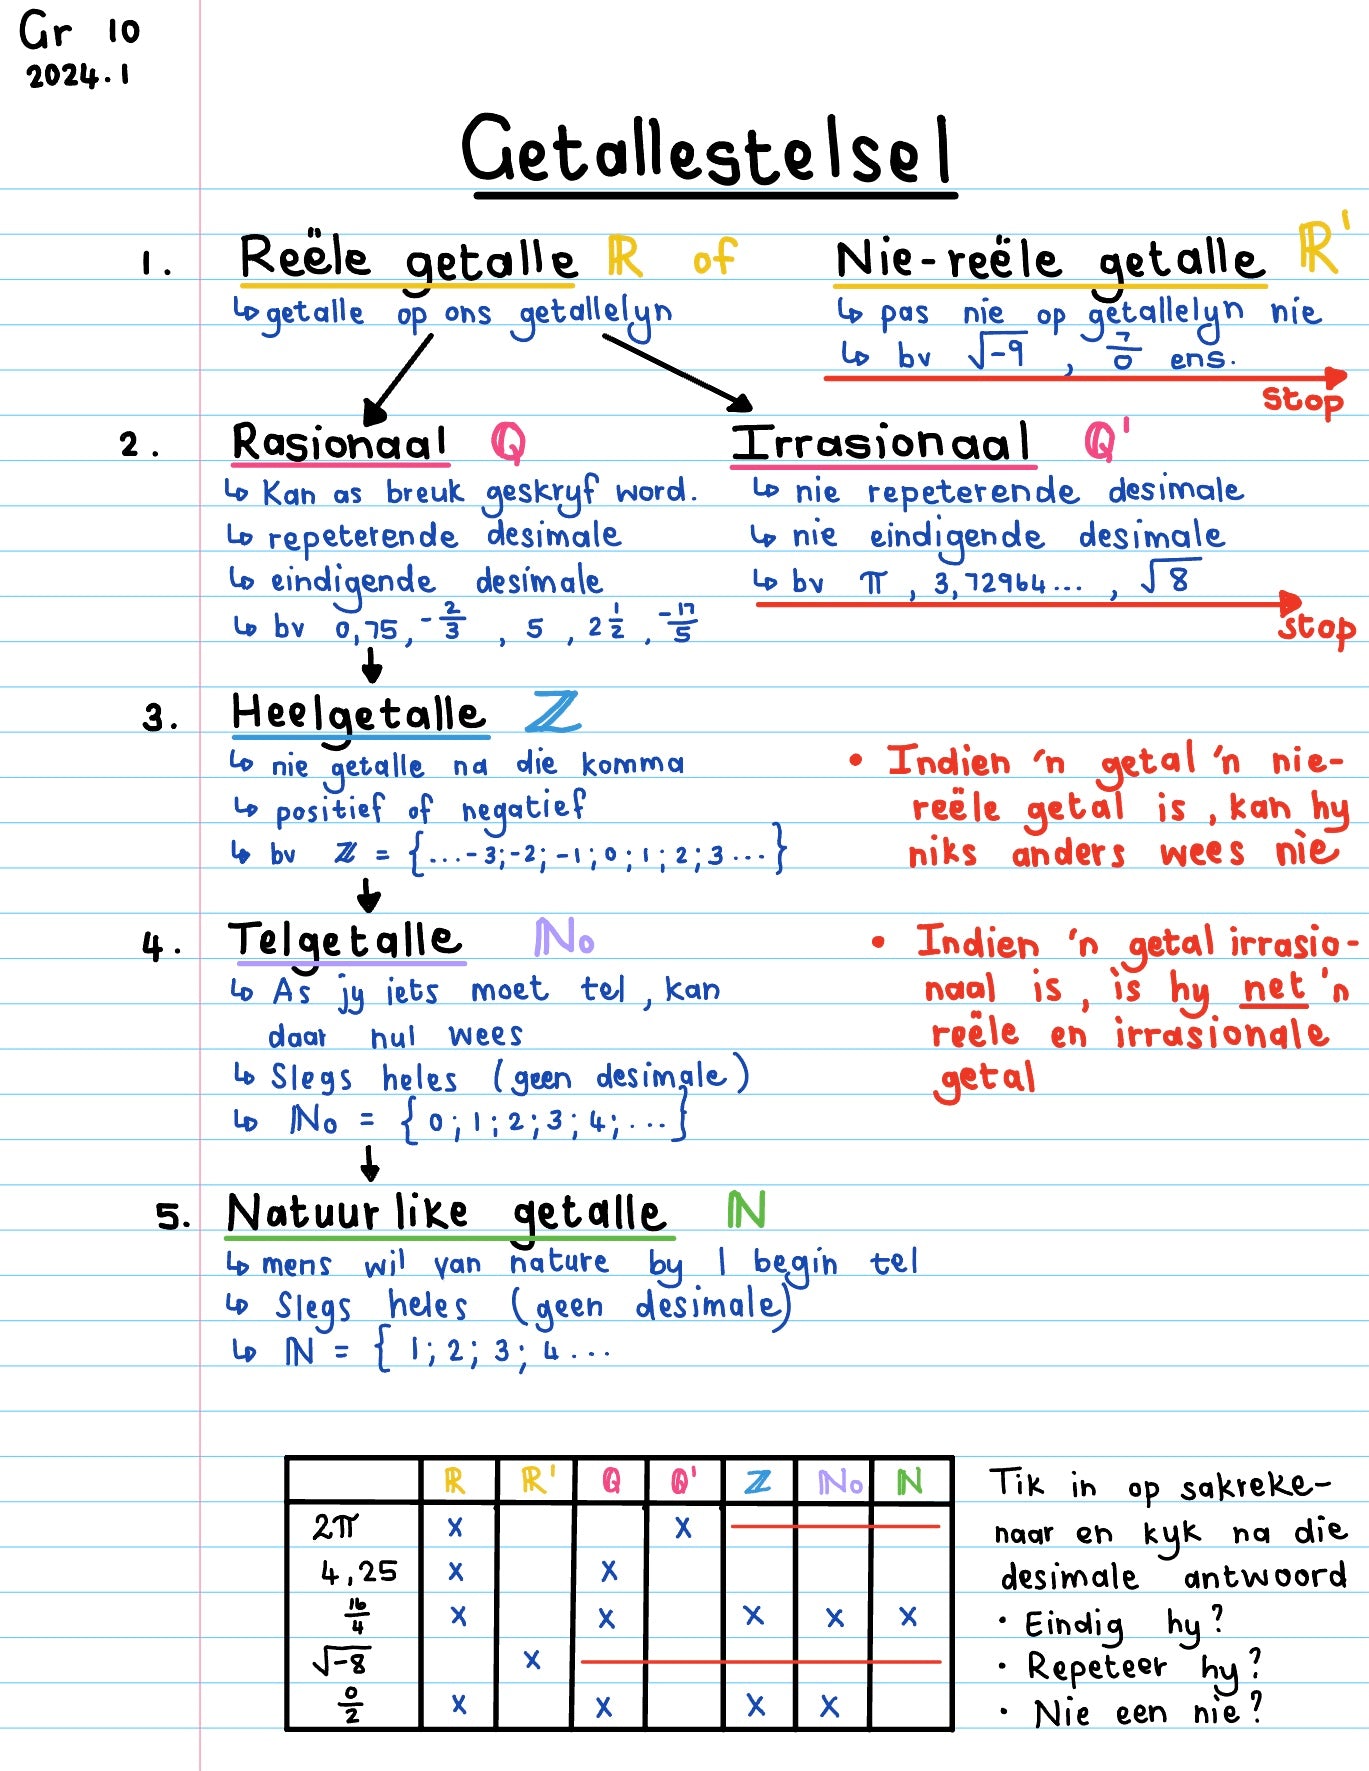 Gr 10
2024.1
Getallestelsel
1. Reële getalle ℝ of Nie-reële getalle ℝ'
↳ getalle op ons getallelyn
↳ pas nie op getallelyn nie
↳ bv √-9 , 7/0 ens.
stop
2. Rasionaal ℚ Irrasionaal ℚ'
↳ Kan as breuk geskryf word.
↳ repeterende desimale
↳ eindigende desimale
↳ bv 0,75, -2/3 , 5 , 2 1/2 , -17/5
↳ nie repeterende desimale
↳ nie eindigende desimale
↳ bv π , 3,72964... , √8
stop
3. Heelgetalle ℤ
↳ nie getalle na die komma
↳ positief of negatief
↳ bv ℤ = {...-3;-2;-1;0;1;2;3...}
• Indien 'n getal 'n nie-
reële getal is, kan hy
niks anders wees nie
4. Telgetalle ℕ₀
↳ As jy iets moet tel, kan
daar nul wees
↳ Slegs heles (geen desimale)
↳ ℕ₀ = {0;1;2;3;4;...}
• Indien 'n getal irrasio-
naal is, is hy net 'n
reële en irrasionale
getal
5. Natuurlike getalle ℕ
↳ mens wil van nature by 1 begin tel
↳ Slegs heles (geen desimale)
↳ ℕ = {1;2;3;4...
ℝ ℝ' ℚ ℚ' ℤ ℕ₀ ℕ
2π x x
4,25 x x
16/4 x x x x x
√-8 x
0/2 x x x x
Tik in op sakreke-
naar en kyk na die
desimale antwoord
• Eindig hy?
• Repeteer hy?
• Nie een nie?